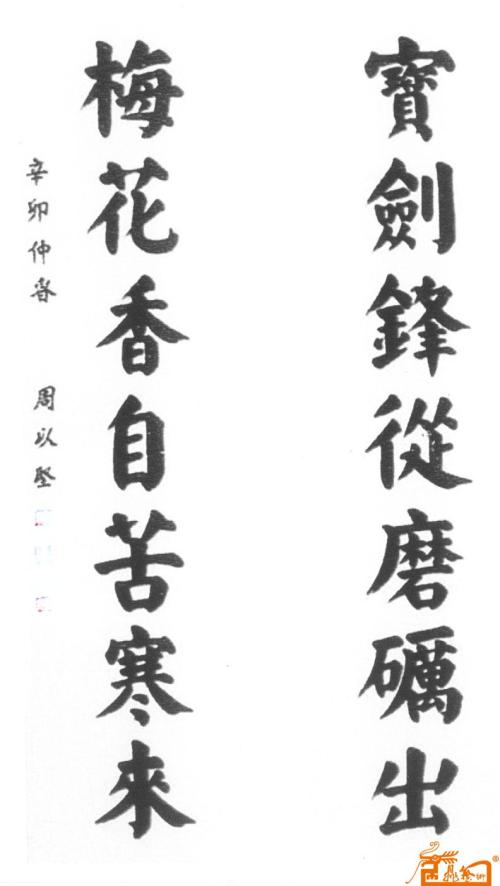 寶劍鋒從磨礪出
梅花香自苦寒來
辛卯仲春
周以堅